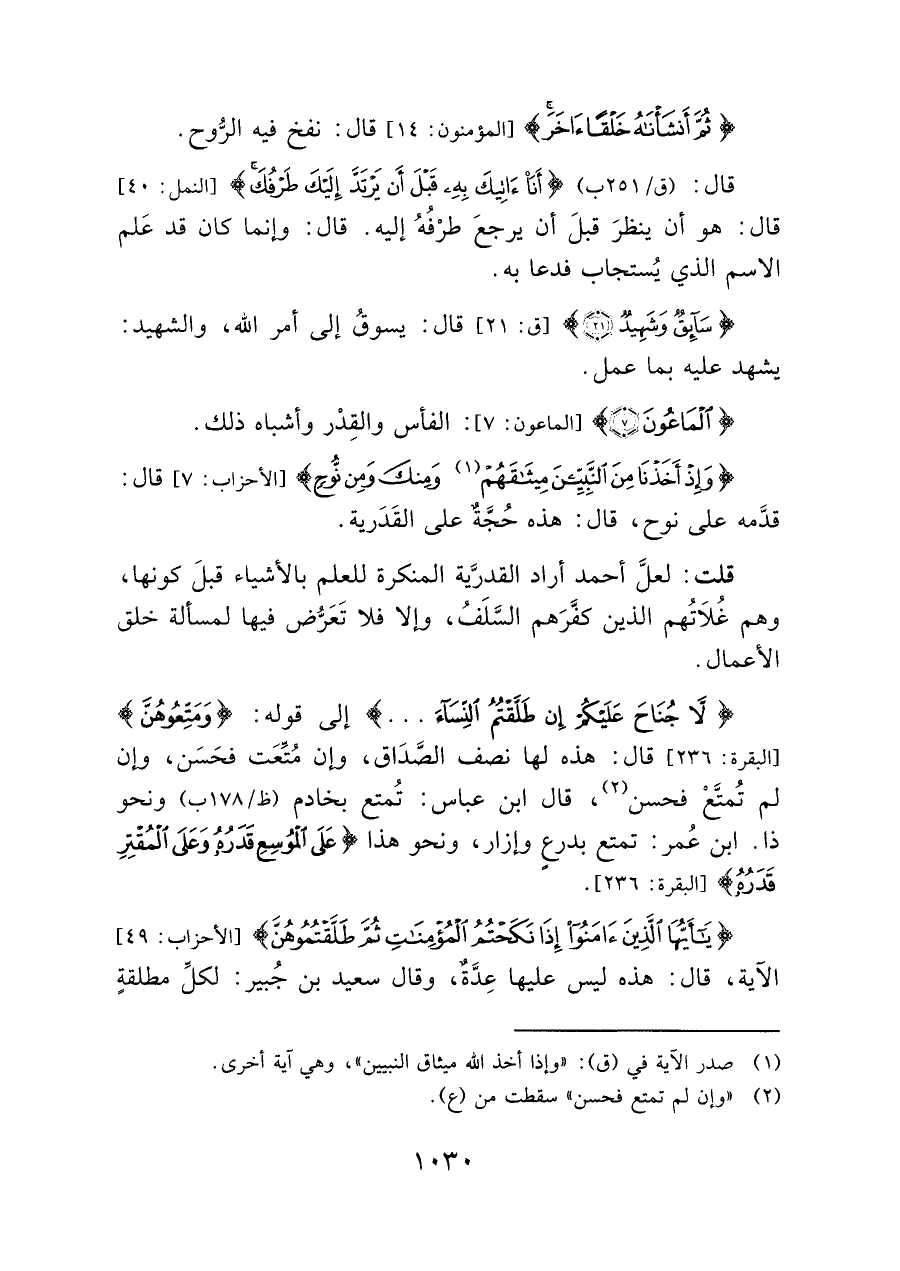 ﴿ ثُمَّ أَنشَأْنَٰهُ خَلْقًا ءَاخَرَ ۚ﴾ [المؤمنون: ١٤] قال: نفخ فيه الرُّوح.
قال: (ق/٢٥١ب) ﴿ أَنَا۠ ءَاتِيكَ بِهِۦ قَبْلَ أَن يَرْتَدَّ إِلَيْكَ طَرْفُكَ ۚ﴾ [النمل: ٤٠]
قال: هو أن ينظرَ قبلَ أن يرجعَ طرْفُهُ إليه. قال: وإنما كان قد عَلم
الاسم الذي يُستجاب فدعا به.
﴿ سَآئِقٌ وَشَهِيدٌ ۝٢١﴾ [ق: ٢١] قال: يسوقُ إلى أمر الله، والشهيد:
يشهد عليه بما عمل.
﴿ ٱلْمَاعُونَ ۝٧﴾ [الماعون: ٧]: الفأس والقِدْر وأشباه ذلك.
﴿ وَإِذْ أَخَذْنَا مِنَ ٱلنَّبِيِّـۧنَ مِيثَٰقَهُمْ(١) وَمِنكَ وَمِن نُّوحٍ﴾ [الأحزاب: ٧] قال:
قدَّمه على نوح، قال: هذه حُجَّةٌ على القَدَرية.
قلت: لعلَّ أحمد أراد القدريَّة المنكرة للعلم بالأشياء قبلَ كونها،
وهم غُلَاتُهم الذين كفَّرَهم السَّلَفُ، وإلا فلا تَعَرُّض فيها لمسألة خلق
الأعمال.
﴿ لَّا جُنَاحَ عَلَيْكُمْ إِن طَلَّقْتُمُ ٱلنِّسَآءَ ...﴾ إلى قوله: ﴿وَمَتِّعُوهُنَّ ﴾
[البقرة: ٢٣٦] قال: هذه لها نصف الصَّدَاق، وإن مُتِّعَت فحَسَن، وإن
لم تُمتَّعْ فحسن(٢)، قال ابن عباس: تُمتع بخادم (ظ/١٧٨ب) ونحو
ذا. ابن عُمر: تمتع بدرعٍ وإزار، ونحو هذا ﴿ عَلَى ٱلْمُوسِعِ قَدَرُهُۥ وَعَلَى ٱلْمُقْتِرِ
قَدَرُهُۥ﴾ [البقرة: ٢٣٦].
﴿ يَٰٓأَيُّهَا ٱلَّذِينَ ءَامَنُوٓا۟ إِذَا نَكَحْتُمُ ٱلْمُؤْمِنَٰتِ ثُمَّ طَلَّقْتُمُوهُنَّ﴾ [الأحزاب: ٤٩]
الآية، قال: هذه ليس عليها عِدَّةٌ، وقال سعيد بن جُبير: لكلِّ مطلقةٍ
(١) صدر الآية في (ق): «وإذا أخذ الله ميثاق النبيين»، وهي آية أخرى.
(٢) «وإن لم تمتع فحسن» سقطت من (ع).
١٠٣٠